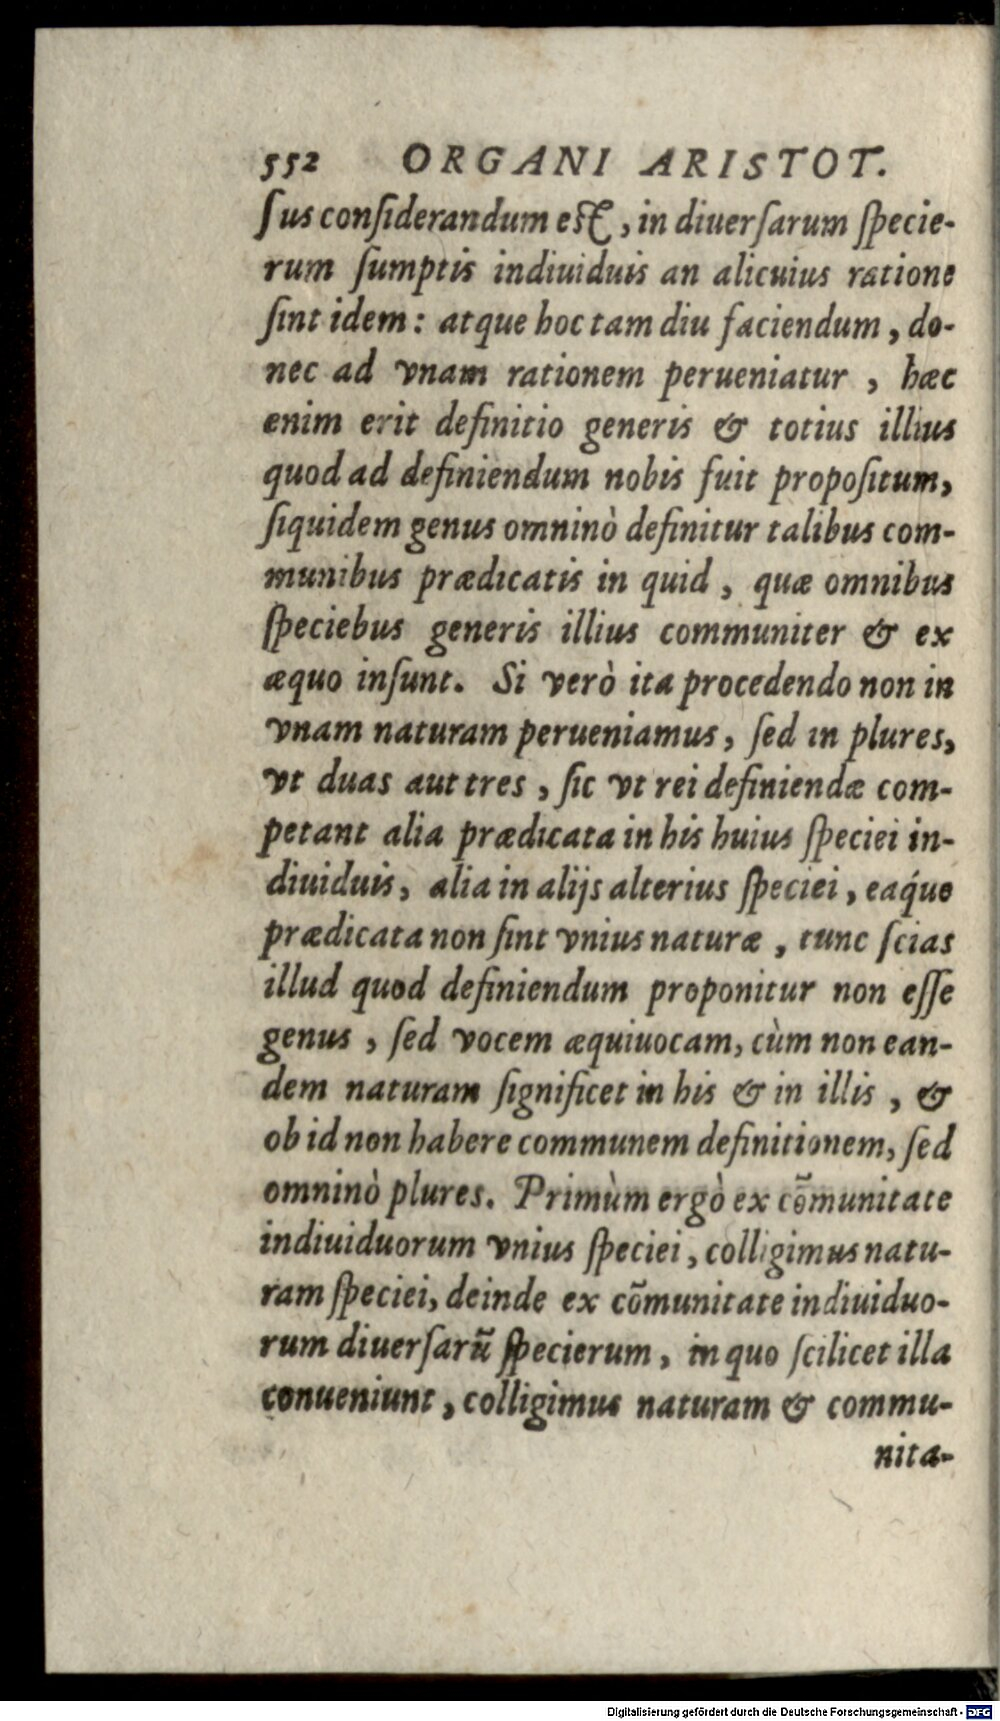 552 ORGANI ARISTOT.
ſus conſiderandum eſt, in diuerſarum ſpecie-
rum ſumptis indiuiduis an alicuius ratione
ſint idem: atque hoc tam diu faciendum, do-
nec ad vnam rationem perueniatur, hæc
enim erit definitio generis & totius illius
quod ad definiendum nobis fuit propoſitum,
ſiquidem genus omninò definitur talibus com-
munibus prædicatis in quid, quæ omnibus
ſpeciebus generis illius communiter & ex
æquo inſunt. Si verò ita procedendo non in
vnam naturam perueniamus, ſed in plures,
vt duas aut tres, ſic vt rei definiendæ com-
petant alia prædicata in his huius ſpeciei in-
diuiduis, alia in alijs alterius ſpeciei, eaq́ue
prædicata non ſint vnius naturæ, tunc ſcias
illud quod definiendum proponitur non eſſe
genus, ſed vocem æquiuocam, cùm non ean-
dem naturam ſignificet in his & in illis, &
ob id non habere communem definitionem, ſed
omninò plures. Primùm ergò ex cõmunitate
indiuiduorum vnius ſpeciei, colligimus natu-
ram ſpeciei, deinde ex cõmunitate indiuiduo-
rum diuerſarũ ſpecierum, in quo ſcilicet illa
conueniunt, colligimus naturam & commu-
nita-
Digitalisierung gefördert durch die Deutsche Forschungsgemeinschaft - DFG